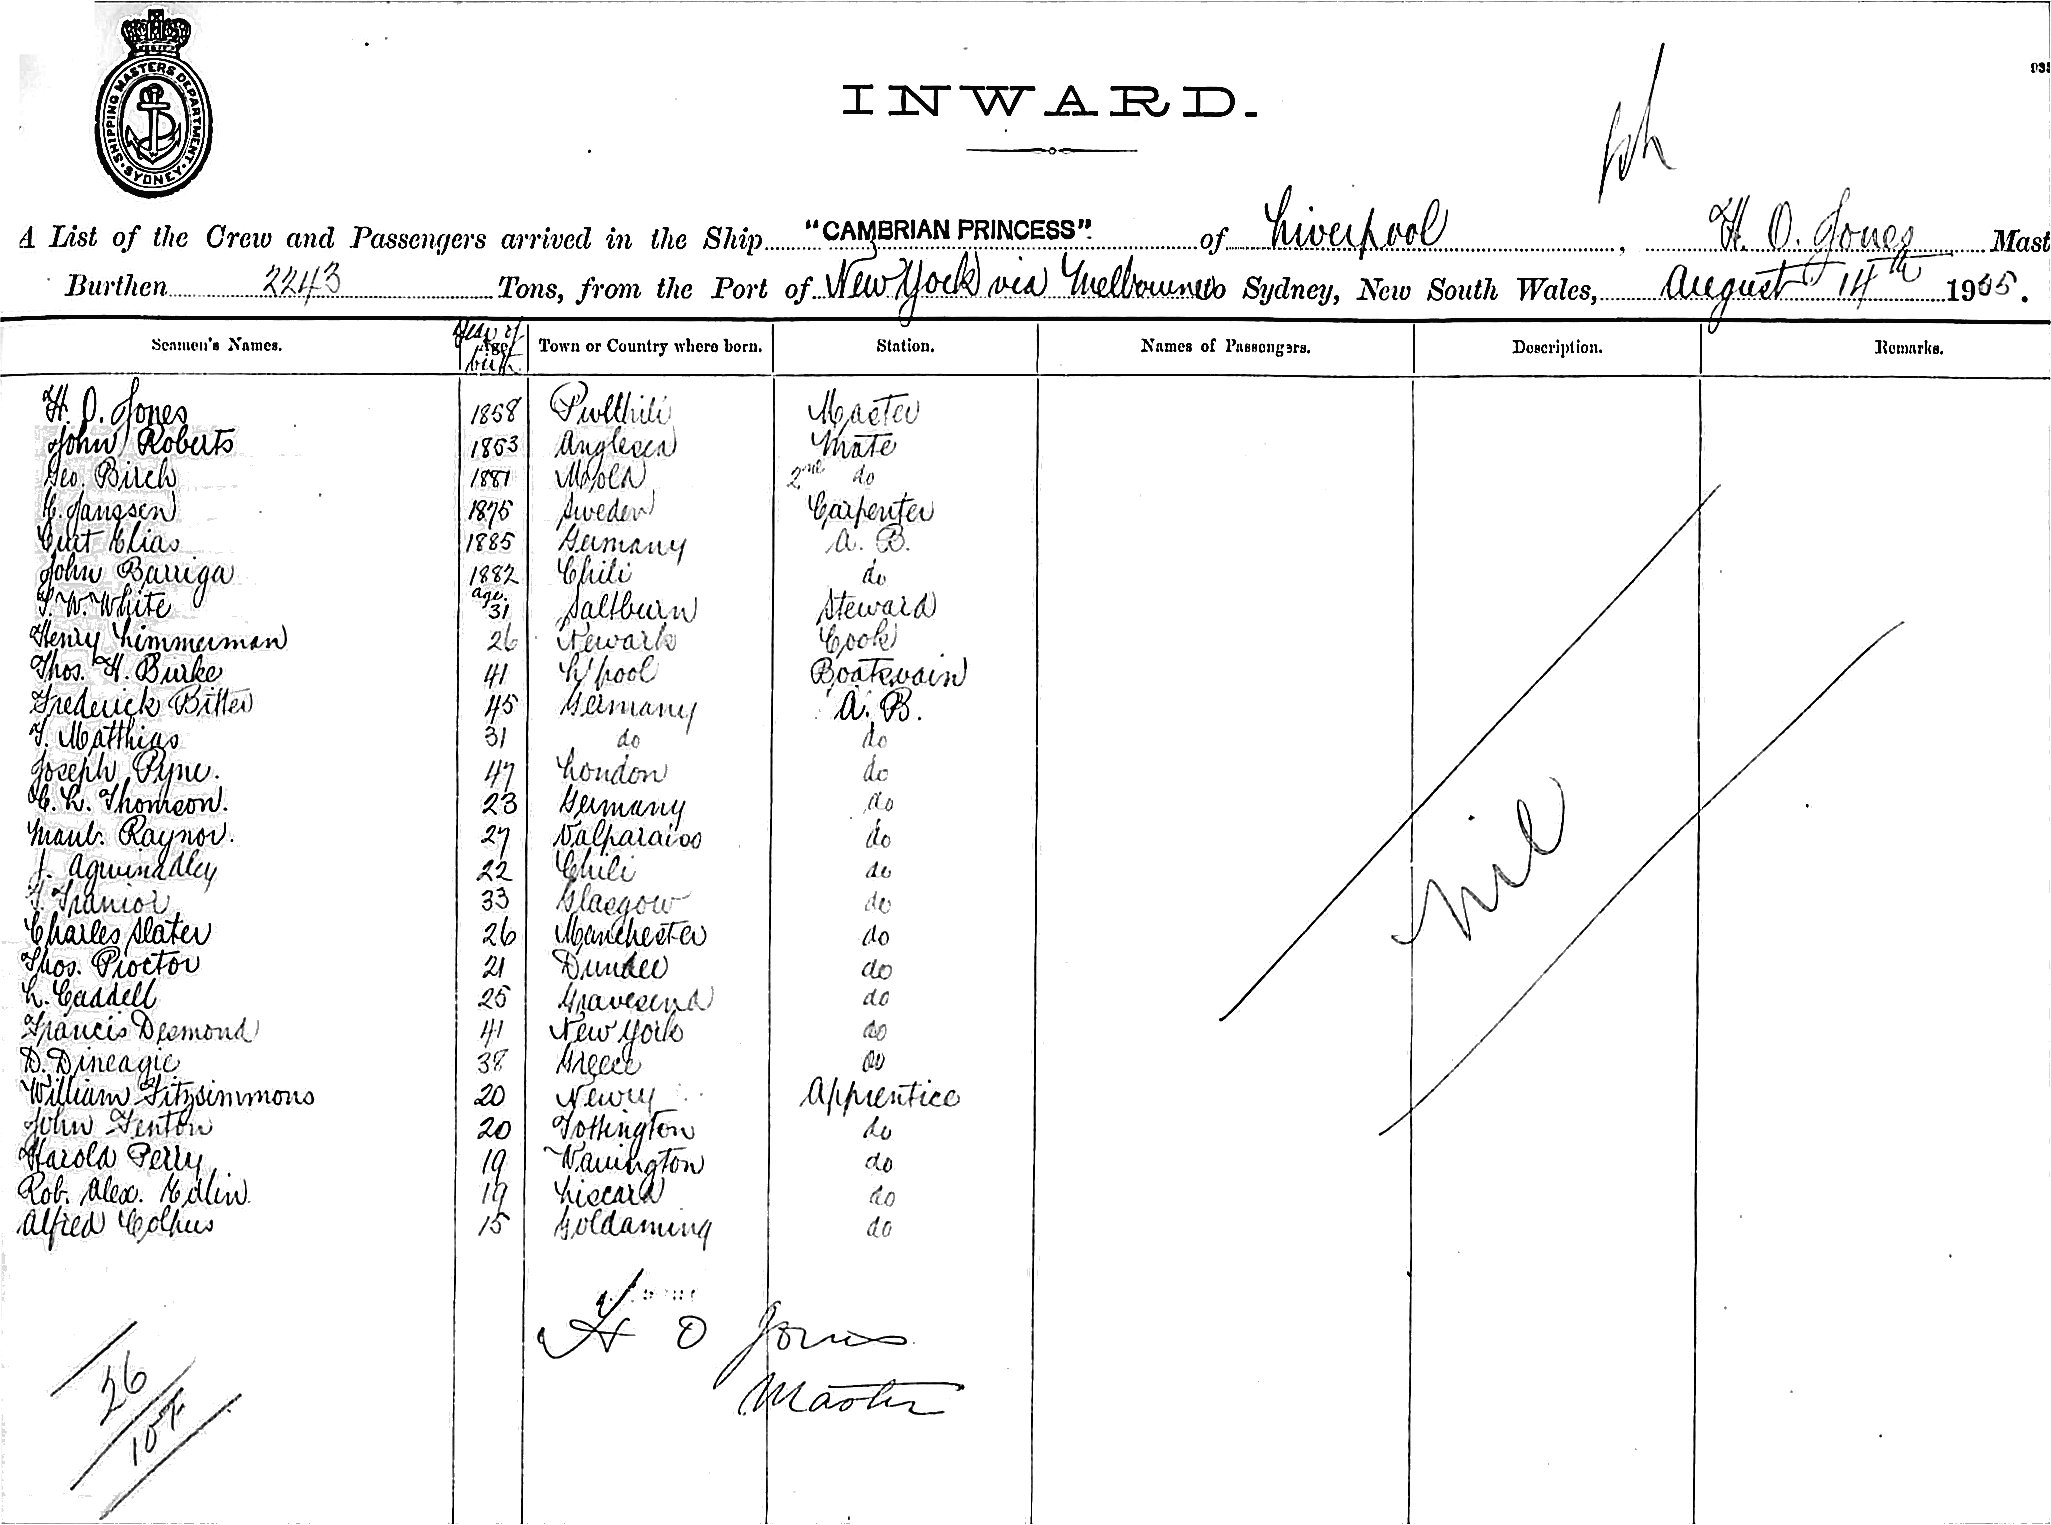 SHIPPING MASTERS DEPARTMENT. SYDNEY
INWARD.
A List of the Crew and Passengers arrived in the Ship "CAMBRIAN PRINCESS". of Liverpool, H. O. Jones Mast
Burthen 2243 Tons, from the Port of New York via Melbourne to Sydney, New South Wales, August 14th 1905.
Seamen's Names. Year of birth Age Town or Country where born. Station. Names of Passengers. Description. Remarks.
H. O. Jones 1858 Pwllheli Master
John Roberts 1853 Anglesea Mate
Geo. Birch 1881 Mold 2nd do
C. Janssen 1875 Sweden Carpenter
Curt Elias 1885 Germany A. B.
John Barriga 1882 Chili do
T. W. White age 31 Saltburn Steward
Henry Limmerman 26 Newark Cook
Thos. H. Burke 41 L'pool Boatswain
Frederick Bitter 45 Germany A. B.
T. Matthias 31 do do
Joseph Pyne. 47 London do
C. L. Thomson. 23 Germany do
Manl. Raynor. 27 Valparaiso do
J. 22 Chili do
33 Glasgow do
Charles Slater 26 Manchester do
Thos. Proctor 21 Dundee do
L. Caddell 25 Gravesend do
Francis Desmond 41 New York do
D. Dineagie 38 Greece do
William Fitzsimmons 20 Newry Apprentice
John Fenton 20 Tottington do
Harold Perry 19 Warrington do
Rob. Alex. Edlin. 19 Liscard do
Alfred Colpus 15 Goldaming do
nil
H O Jones
Master
26